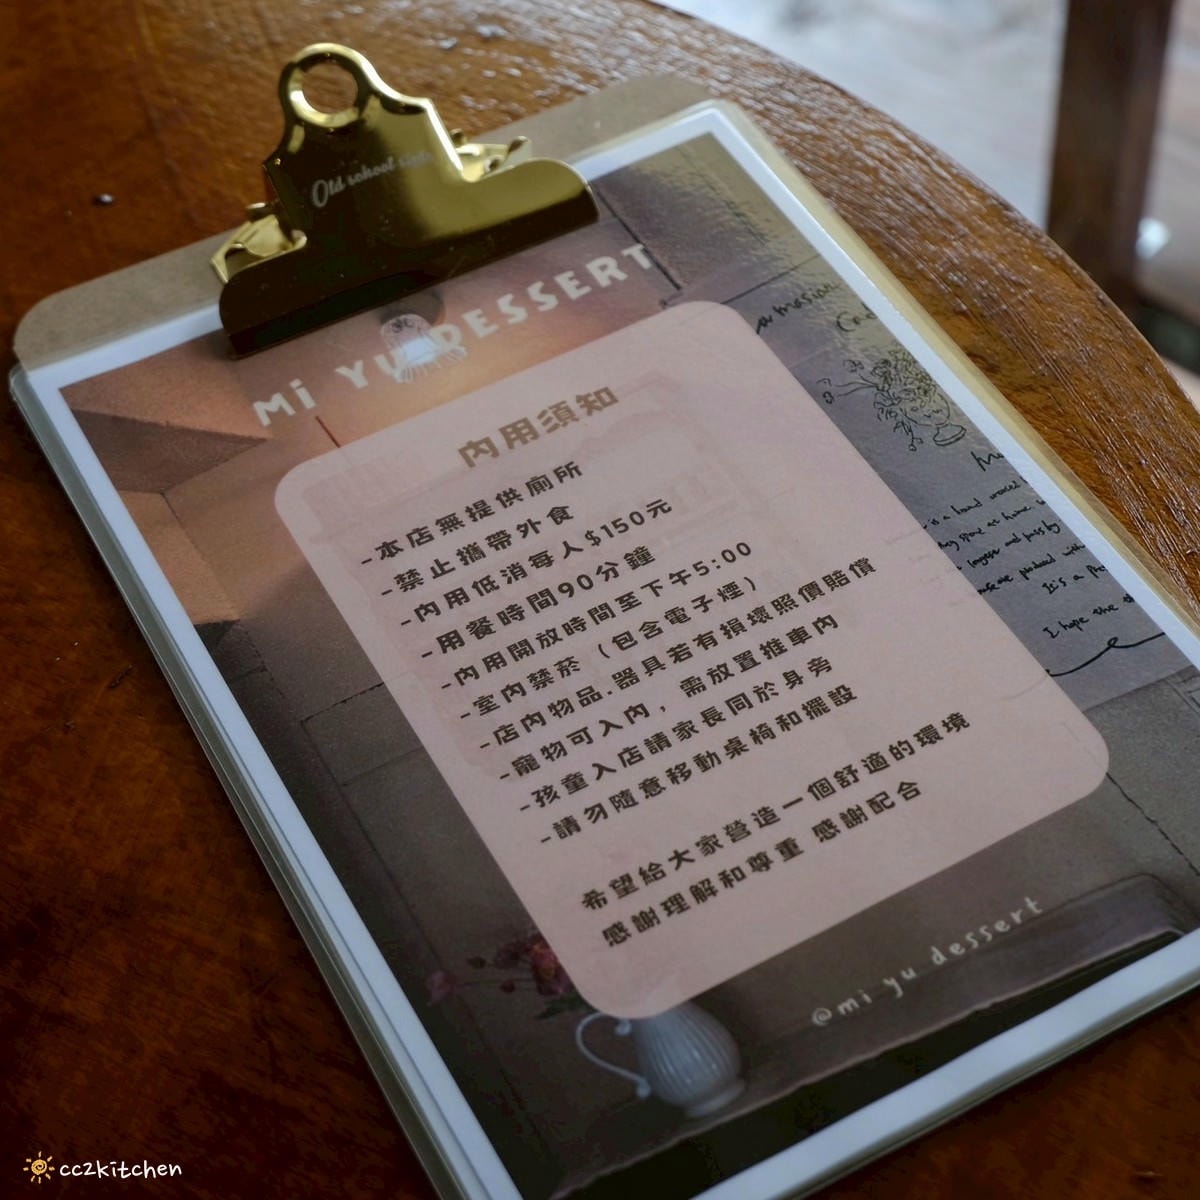 Old school
Mi YU DESSERT
內用須知
-本店無提供廁所
-禁止攜帶外食
-內用低消每人$150元
-用餐時間90分鐘
-內用開放時間至下午5:00
-室內禁菸（包含電子煙）
-店內物品.器具若有損壞照價賠償
-寵物可入內，需放置推車內
-孩童入店請家長同於身旁
-請勿隨意移動桌椅和擺設
希望給大家營造一個舒適的環境
感謝理解和尊重 感謝配合
is a hand
longest and pass by
It's a
I hope the
@mi yu dessert
cc2kitchen